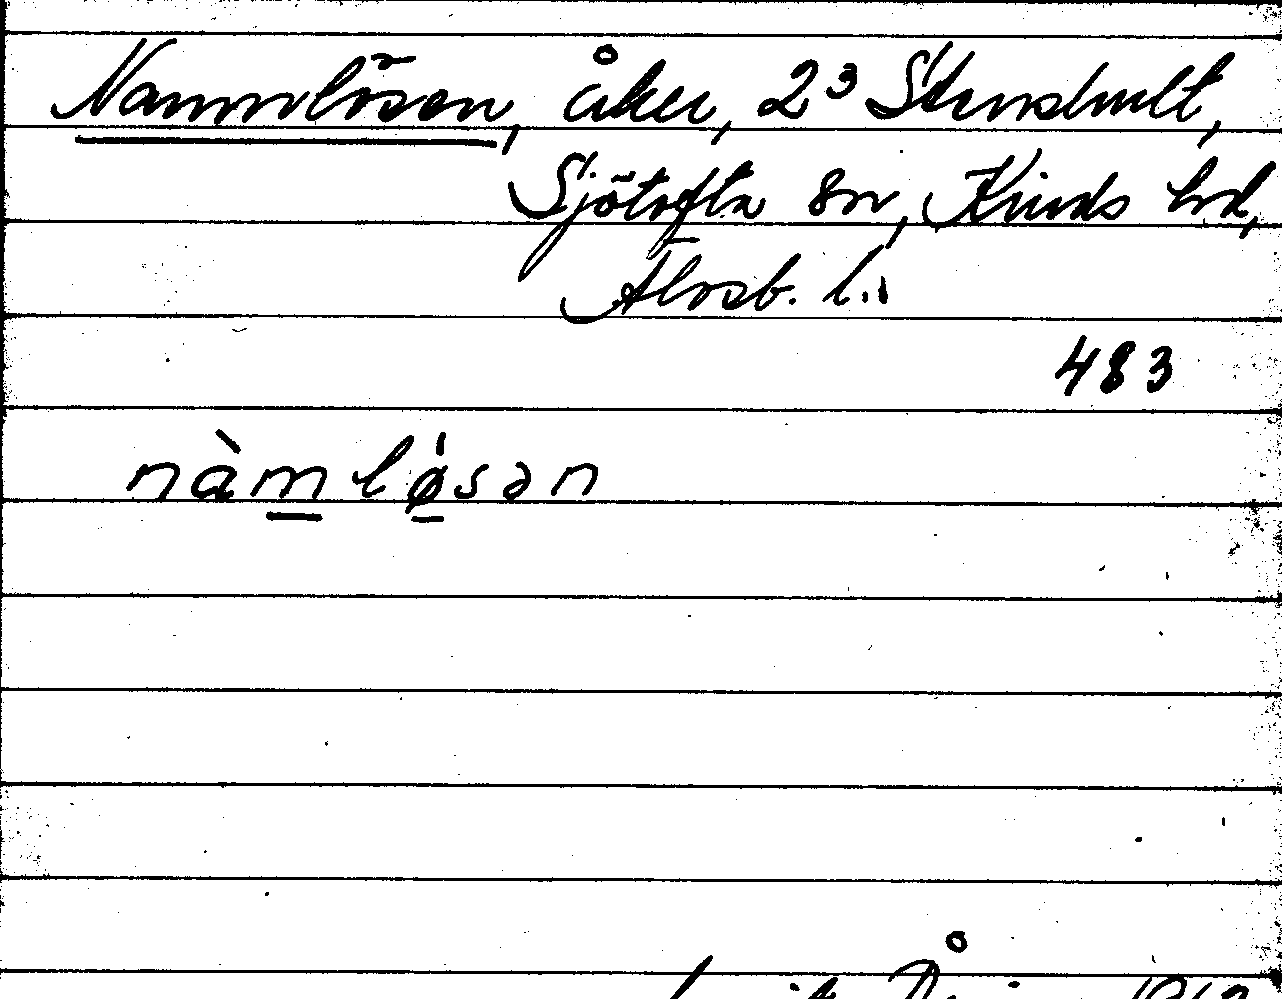 Nammlösen, åker, 2³ Stenshult,
Sjötofta sn, Kinds hd,
Älvsb. l.
483
nàmløsən